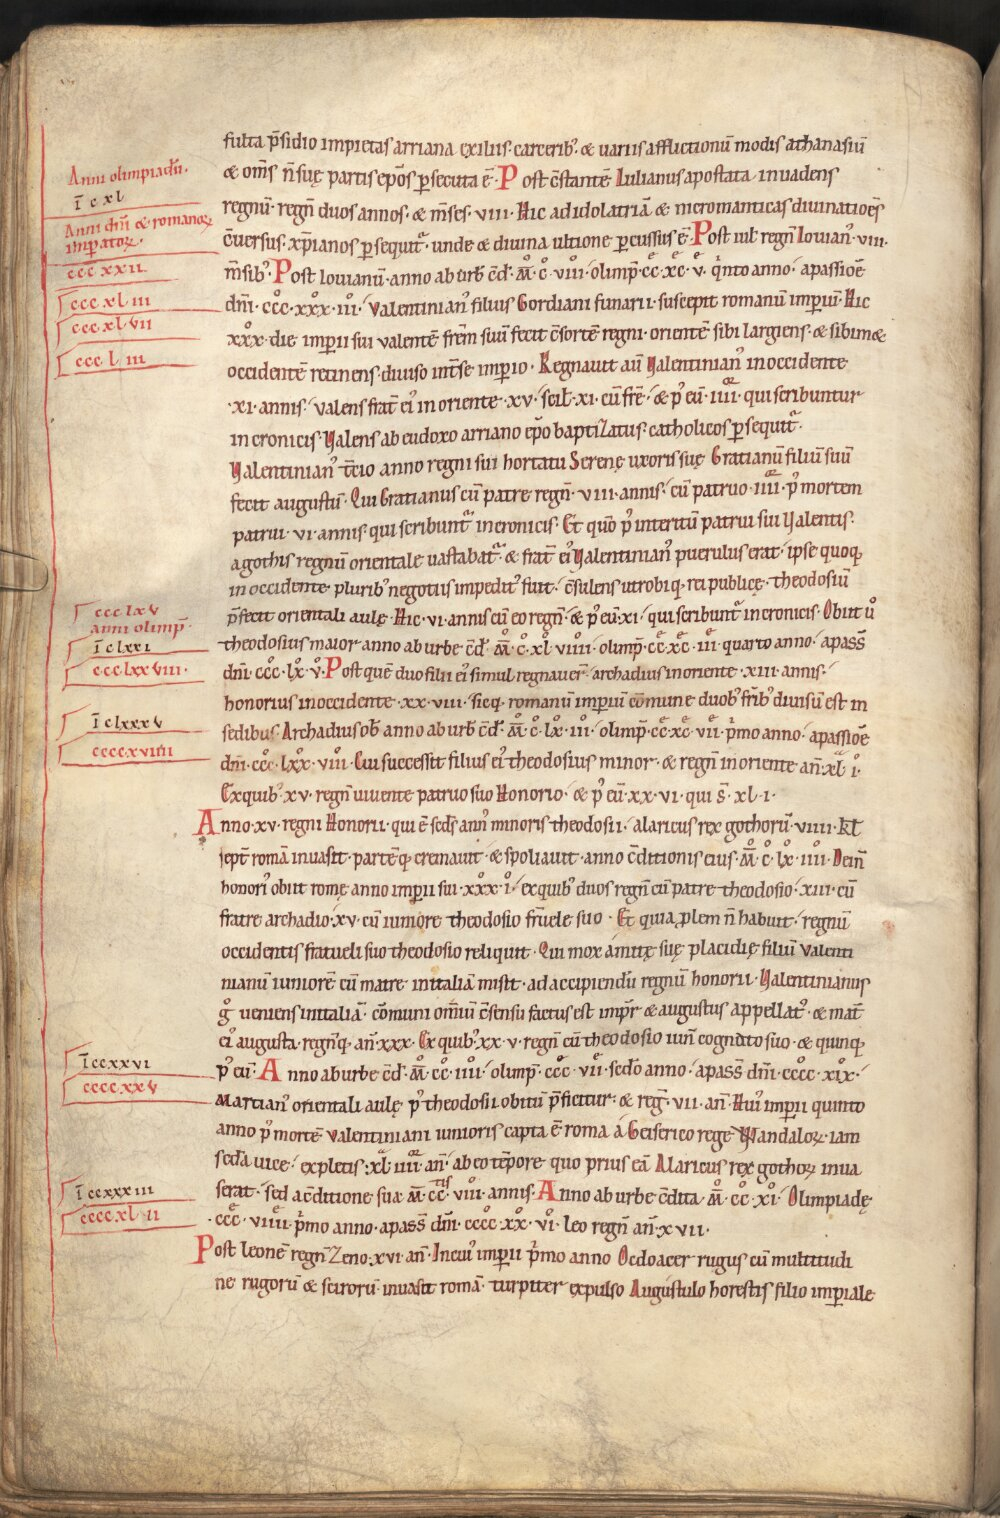 Anni olimpiadū.
ī c xl
Anni dm̄i & romanoꝝ
imꝑatoꝝ.
ccc xxii
ccc xl iii
ccc xl vii
ccc l iii
ccc lxv
anni olimp̄.
ī c lxxi
ccc lxx viii.
ī c lxxx v
cccc xviiii
ī cc xx vi
cccc xx v
ī cc xxx iii
cccc xl ii
fulta p̄sidio impietas arriana exiliis. carcerib᾽. & variis afflictionū modis athanasiū
& om̄s n̄ suę partis ep̄os ꝑsecuta ē. Post c̄stantē Iulianus apostata invadens
regnū. regn̄ duos annos. & m̄ses. viii. Hic ad idolatriā & nicromanticas divinatioēs
c̄versus. xp̄ianos ꝑsequit᷑. unde & divina ultione ꝑcussus ē. Post iul̄ regn̄ Iovian᾽. viii.
m̄sib᾽. Post Iovianū. anno ab urb̄ c̄d̄. M̄. c. viii. olimp̄. cc. xc. v. q̇nto anno. a passioē
dm̄i. ccc. xxx. iii. Valentinian᾽ filius Gordiani funarii. suscepit romanū imperiū. Hic
xxx. die imperii sui valentē frēm suū fecit c̄sortē regni. orientē sibi largiens. & sibimę
occidentē retinens. diviso int̄ se imperio. Regnavit aū Valentinian᾽ in occidente
.xi. annis. valens frat̄ ei᾽ in oriente. xv. scil̄. xi. cū frē. & p᾽ eū. iiii. qui scribuntur
in cronicis. Valens ab eudoxo arriano ep̄o baptizatus. catholicos ꝑsequit᷑.
Valentinian᾽ t̄cio anno regni sui hortatu Serenę uxoris suę Gratianū filiū suū
fecit augustū. Qui Gratianus cū patre regn̄. viii. annis. cū patruo. iiii. p᾽ mortem
patrui. vi. annis. qui scribunt᷑ in cronicis. Et quō p᾽ interitū patrui sui Valentis.
a gothis regnū orientale vastabat᷑. & frat̄ ei᾽ Valentinian᾽ puerulus erat. ipse quoq;
in occidente plurib᾽ negotiis impedit᾽ fuit. c̄sulens utrobiq; rei publicę. theodosiū
p̄fecit orientali aulę. Hic. vi. annis cū eo regn̄. & p᾽ eū. xi. qui scribunt᷑ in cronicis. Obiit v᾽
theodosius maior anno ab urbe c̄d̄. M̄. c. xl. viiii. olimp̄. cc. xc. iii. quarto anno. a pass̄
dm̄i. ccc. lx. v. Post quē duo filii ei᾽ simul regnaver̄. archadius in oriente. xiii. annis.
honorius in occidente. xx. viii. sicq; romanū imperiū cōmune duob᾽ frīb᾽ divisū est in
sedibus. Archadius ob̄ anno ab urb̄ c̄d̄. M̄. c. lx. iii. olimp̄. cc. xc. vii. p̄mo anno. a passioē
dm̄i. ccc. lxx. viii. Cui successit filius ei᾽ theodosius minor. & regn̄ in oriente an̄. xl. i.
Ex quib᾽. xv. regn̄ vivente patruo suo Honorio. & p᾽ eū. xx. vi. qui s̄. xl. i.
Anno. xv. regni Honorii. qui ē sed̄s ann᾽ minoris theodosii. alaricus rex gothorū. viiii. kl̄
sept̄ romā invasit. partēq; cremavit. & spoliavit. anno c̄ditionis eius. M̄. c. lx. iiii. Dein̄
honori᾽ obiit romę anno imperii sui. xxx. i. ex quib᾽ duos regn̄ cū patre theodosio. xiii. cū
fratre archadio. xv. cū iuniore theodosio fr̄uele suo. Et quia ꝓlem n̄ habuit. regnū
occidentis fratueli suo theodosio reliquit. Qui mox amitę suę placidię filiū Valenti
nianū iuniorē cū matre in italiā misit. ad accipiendū regnū honorii. Valentinianus
g᾽ veniens in italiā. cōmuni omīu c̄sensu factus est imp̄r & augustus appellat᾽. & mat̄
ei᾽ augusta. regn̄q; an̄. xxx. Ex quib᾽. xx. v. regn̄ cū theodosio iun̄ cognato suo. & quinq;
p᾽ eū. Anno ab urbe c̄d̄. M̄. cc. iiii. olimp̄. ccc. vii. sedo anno. a pass̄ dm̄i. cccc. xix.
Martian᾽ orientali aulę p᾽ theodosii obitū p̄ficitur. & reg̅. vii. an̄. Hui᾽ imperii quinto
anno p᾽ mortē Valentiniani iunioris capta ē roma a Geiserico rege Wandaloꝝ. iam
seda vice. expletis. xl. iiii. an̄. ab eo tēpore quo prius eā Alaricus rex gothoꝝ inva
serat. sed a c̄ditione sua M̄. cc. viii. annis. Anno ab urbe c̄dita. M̄. cc. xi. Olimpiadę
.ccc. viiii. p̄mo anno. a pass̄ dm̄i. cccc. xx. vi. leo regn̄ an̄. xvii.
Post leonē regn̄ Zeno. xvi an̄. In cui᾽ imperii p̄mo anno Ocdoacer rugus cū multitudi
ne rugorū & scirorū invasit romā. turpiter expulso Augustulo horestis filio imperiale